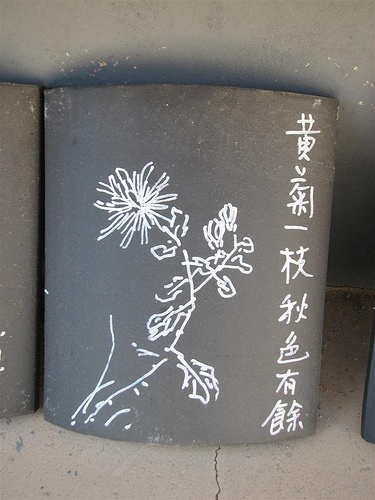 黃菊一枝秋色有餘